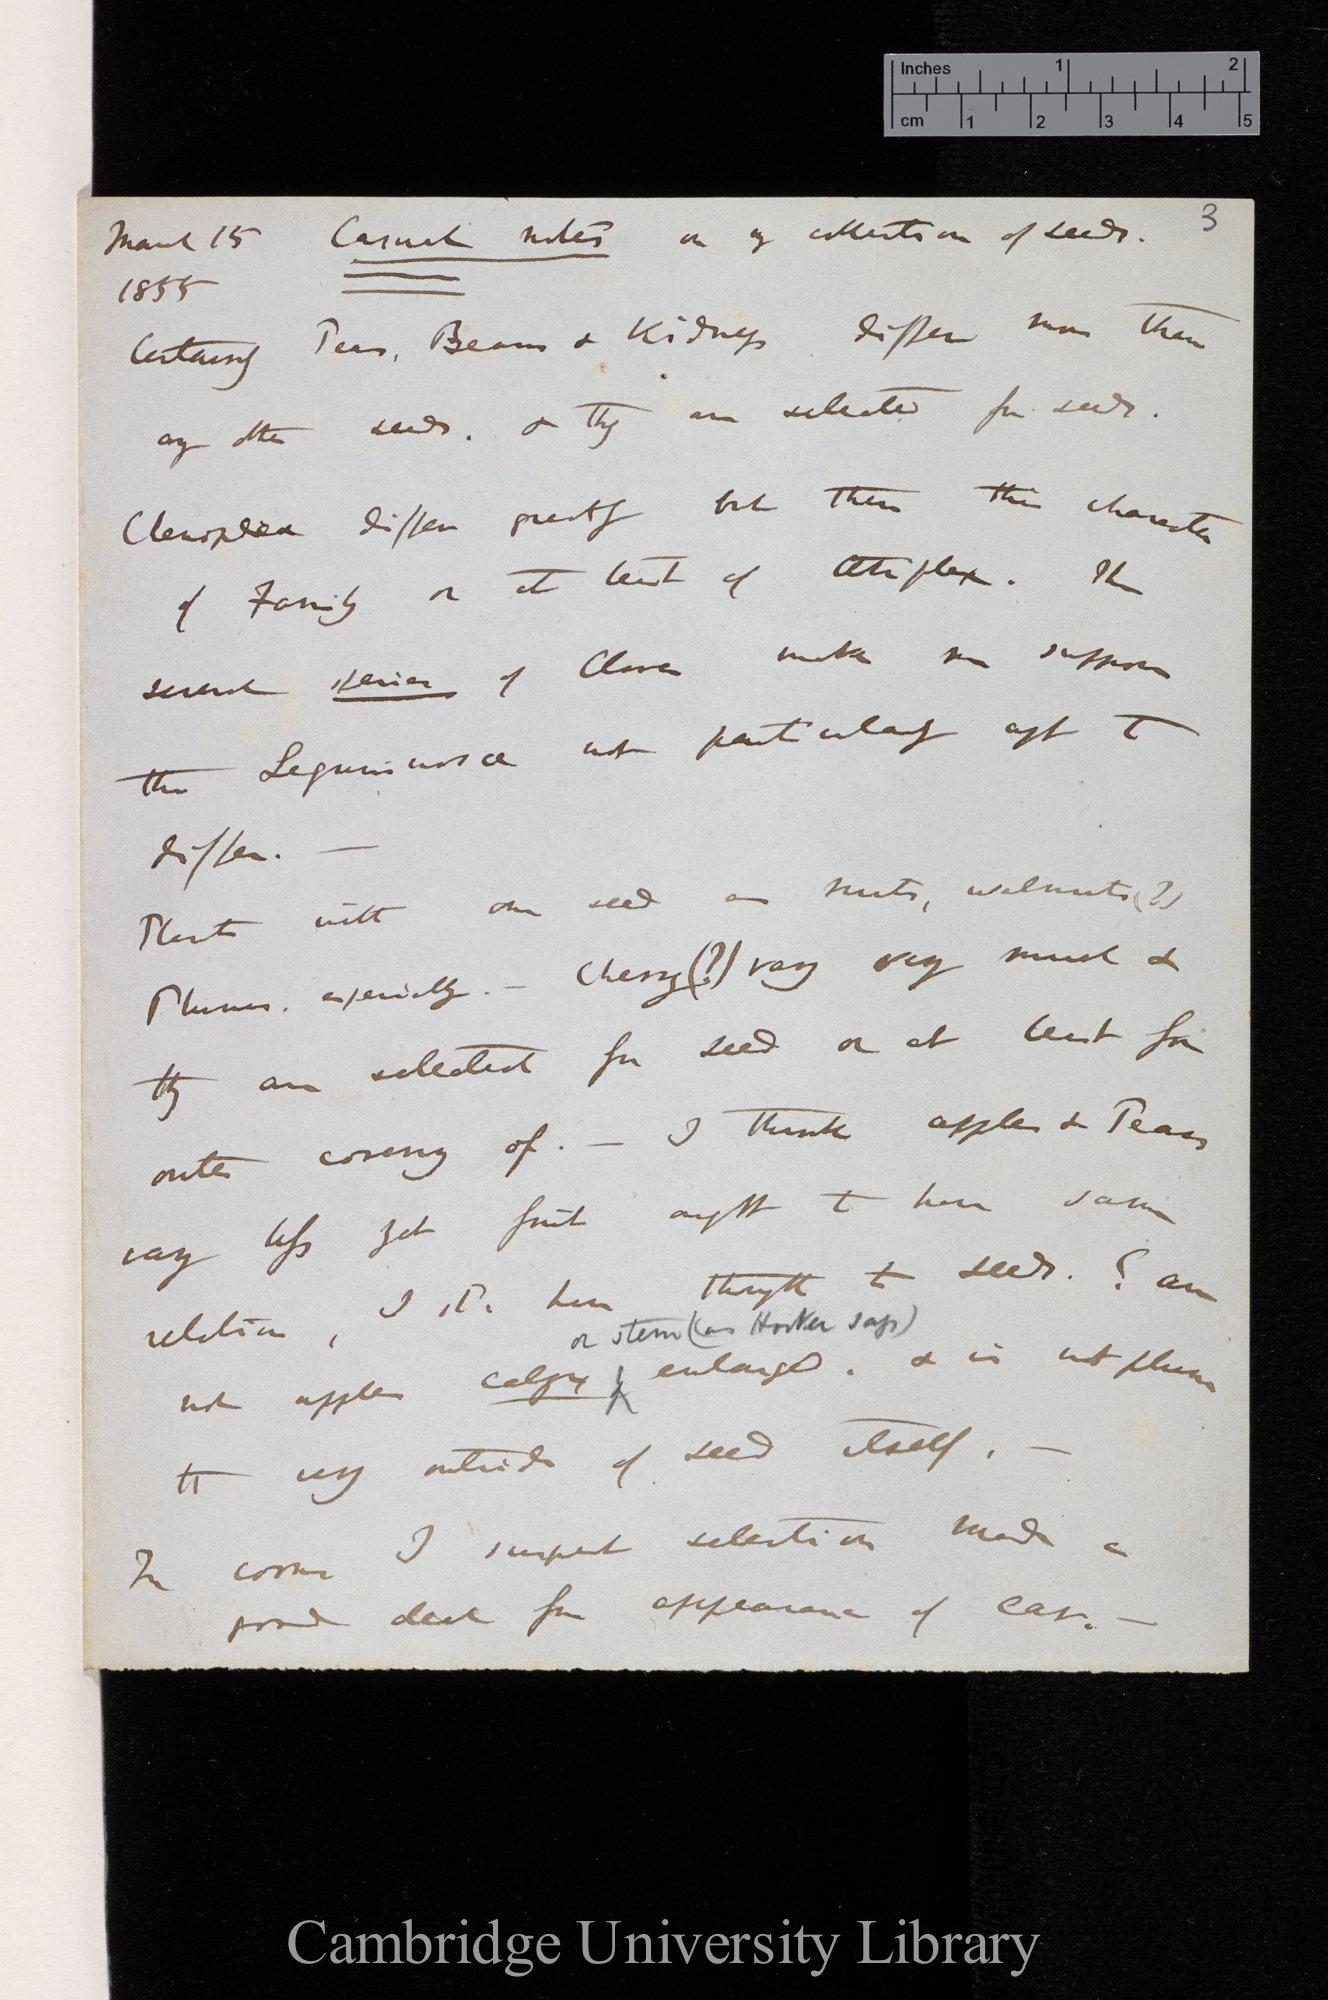 Inches 1 2
cm 1 2 3 4 5
3
March 15 Casual notes on my collection of seeds.
1855
Certainly Peas, Beans & Kidneys differ more than
any other seeds. & they are selected for seeds.
Chenopodiæ differ greatly but then this character
of Family or at least of Atriplex. The
several species of Clover make me suppose
the Leguminosæ not particularly apt to
differ. —
Plants with one seed as nuts, walnuts (?)
Plums. especially. — Cherry (?) vary very much &
they are selected for seed or at least for
outer covering of. — I think apples & Pears
vary less yet fruit ought to have same
relation, I shd. have thought to seeds. ? are
or stem (as Hooker says)
not apples calyx enlarged. & is not plum
the very outside of seed itself. —
In corn I suspect selection made a
good deal for appearance of ear. —
Cambridge University Library